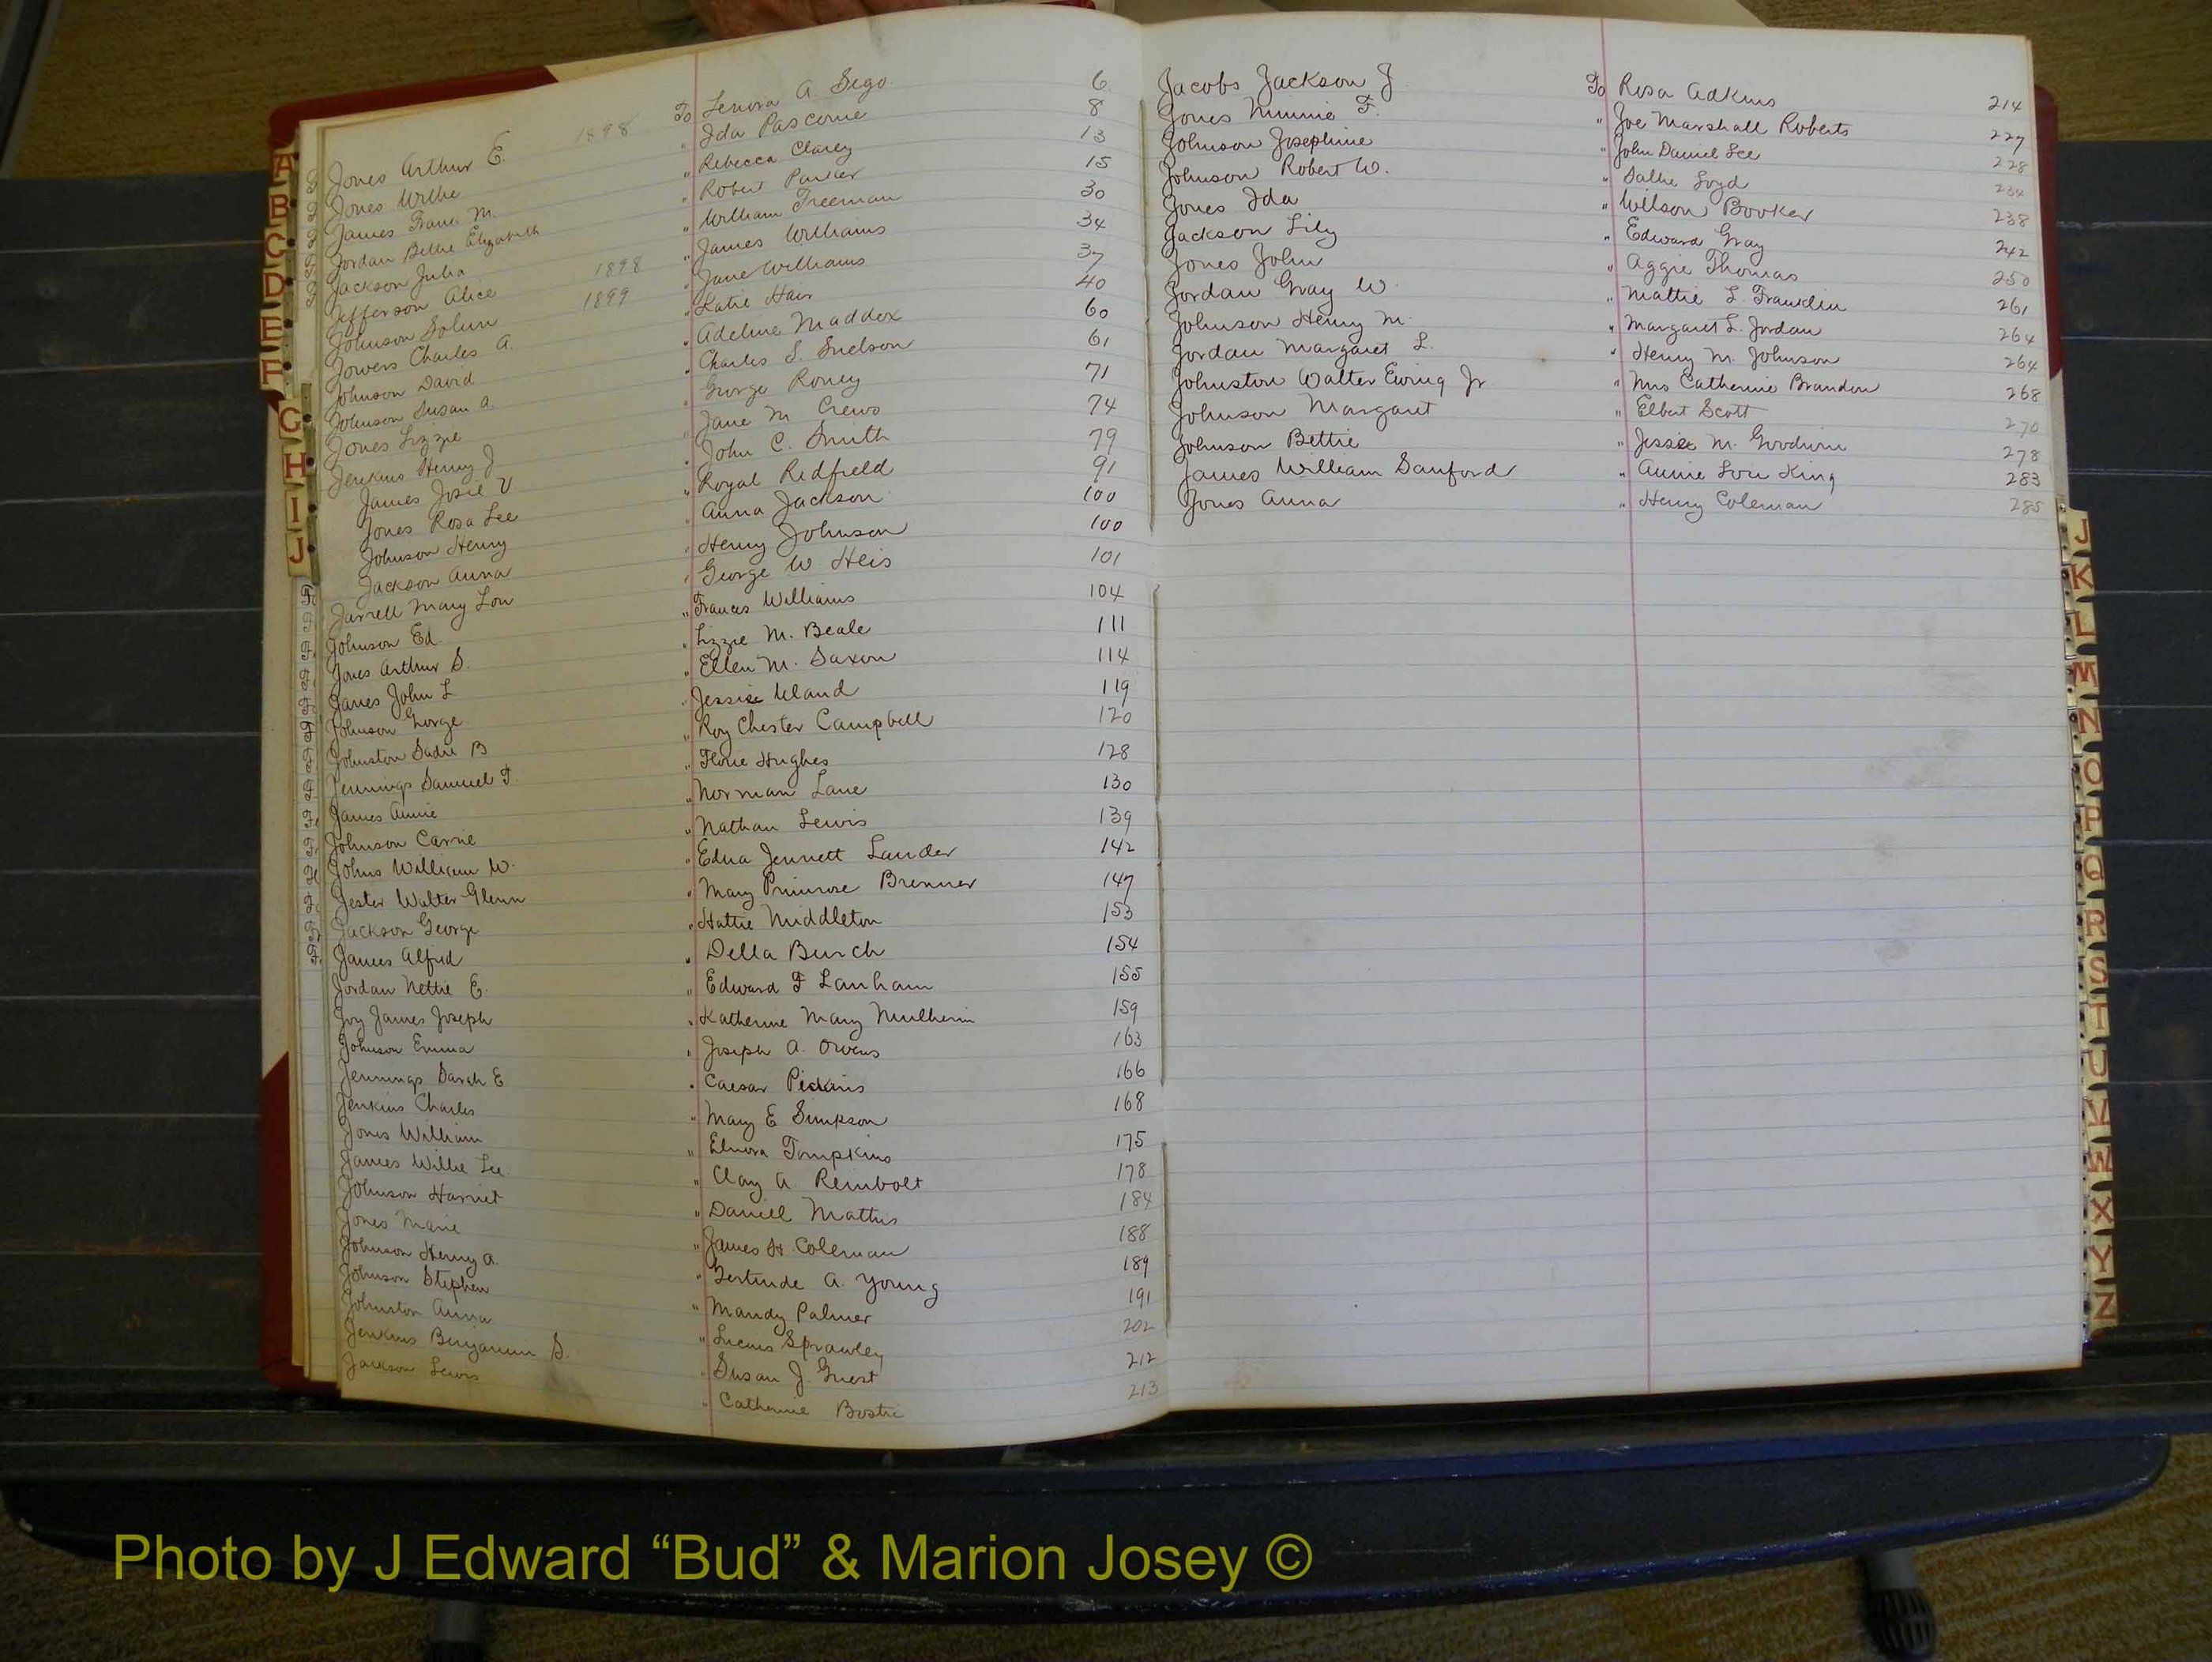 Jones Arthur E. 1898 To Lenora A. Sego 6
Jones Willie " Ida Pascome 8
James Frank M. " Rebecca Clarey 13
Jordan Bettie Elizabeth " Robert Parker 15
Jackson Julia " William Freeman 30
Jefferson Alice 1898 " James Williams 34
Johnson Solum 1899 " Jane Williams 37
Jowers Charles A. " Katie Hair 40
Johnson David " Adeline Maddox 60
Johnson Susan A. " Charles S. Snelson 61
Jones Lizzie " George Roney 71
Jenkins Henry J " Jane M Crews 74
James Josie V " John C. Smith 79
Jones Rosa Lee " Royal Redfield 91
Johnson Henry " Anna Jackson 100
Jackson Anna " Henry Johnson 100
Jarrell Mary Lou " George W Heis 101
Johnson Ed " Frances Williams 104
Jones Arthur S. " Lizzie M. Beale 111
James John L " Ellen M. Saxon 114
Johnson George " Jessie Uland 119
Johnston Sadie B " Roy Chester Campbell 120
Jennings Samuel T. " Florie Hughes 128
James Annie " Norman Lane 130
Johnson Carrie " Nathan Lewis 139
Johns William W. " Edna Jennett Lander 142
Jester Walter Glenn " Mary Primrose Brenner 147
Jackson George " Hattie Middleton 153
James Alfred " Della Burch 154
Jordan Nettie E. " Edward F Lanham 155
Joy James Joseph " Katherine Mary Mulherin 159
Johnson Emma " Joseph A. Owens 163
Jennings Sarah E " Caesar Pickins 166
Jenkins Charles " Mary E Simpson 168
Jones William " Elnora Tompkins 175
James Willie Lee " Clay A. Reinbolt 178
Johnson Harriet " Daniel Mathis 184
Jones Marie " James H. Coleman 188
Johnson Henry A. " Gertrude A. Young 189
Johnson Stephen " Mandy Palmer 191
Johnston Anna " Lucius Sprawley 202
Jenkins Benjamin S. " Susan J. Guest 212
Jackson Lewis " Catherine Bostic 213
Jacobs Jackson J. To Rosa Adkins 214
Jones Minnie F. " Joe Marshall Roberts 227
Johnson Josephine " John Daniel Lee 228
Johnson Robert W. " Sallie Loyd 234
Jones Ida " Wilson Booker 238
Jackson Lily " Edward Gray 242
Jones John " Aggie Thomas 250
Jordan Gray W. " Mattie L. Franklin 261
Johnson Henry M. " Margaret L. Jordan 264
Jordan Margaret L. " Henry M. Johnson 264
Johnston Walter Ewing Jr " Mrs Catherine Brandon 268
Johnson Margaret " Elbert Scott 270
Johnson Bettie " Jessie M. Goodwin 278
James William Sanford " Annie Lou King 283
Jones Anna " Henry Coleman 285
A
B
C
D
E
F
G
H
I
J
J
K
L
M
N
O
P
Q
R
S
T
U
V
W
X
Y
Z
Photo by J Edward “Bud” & Marion Josey ©